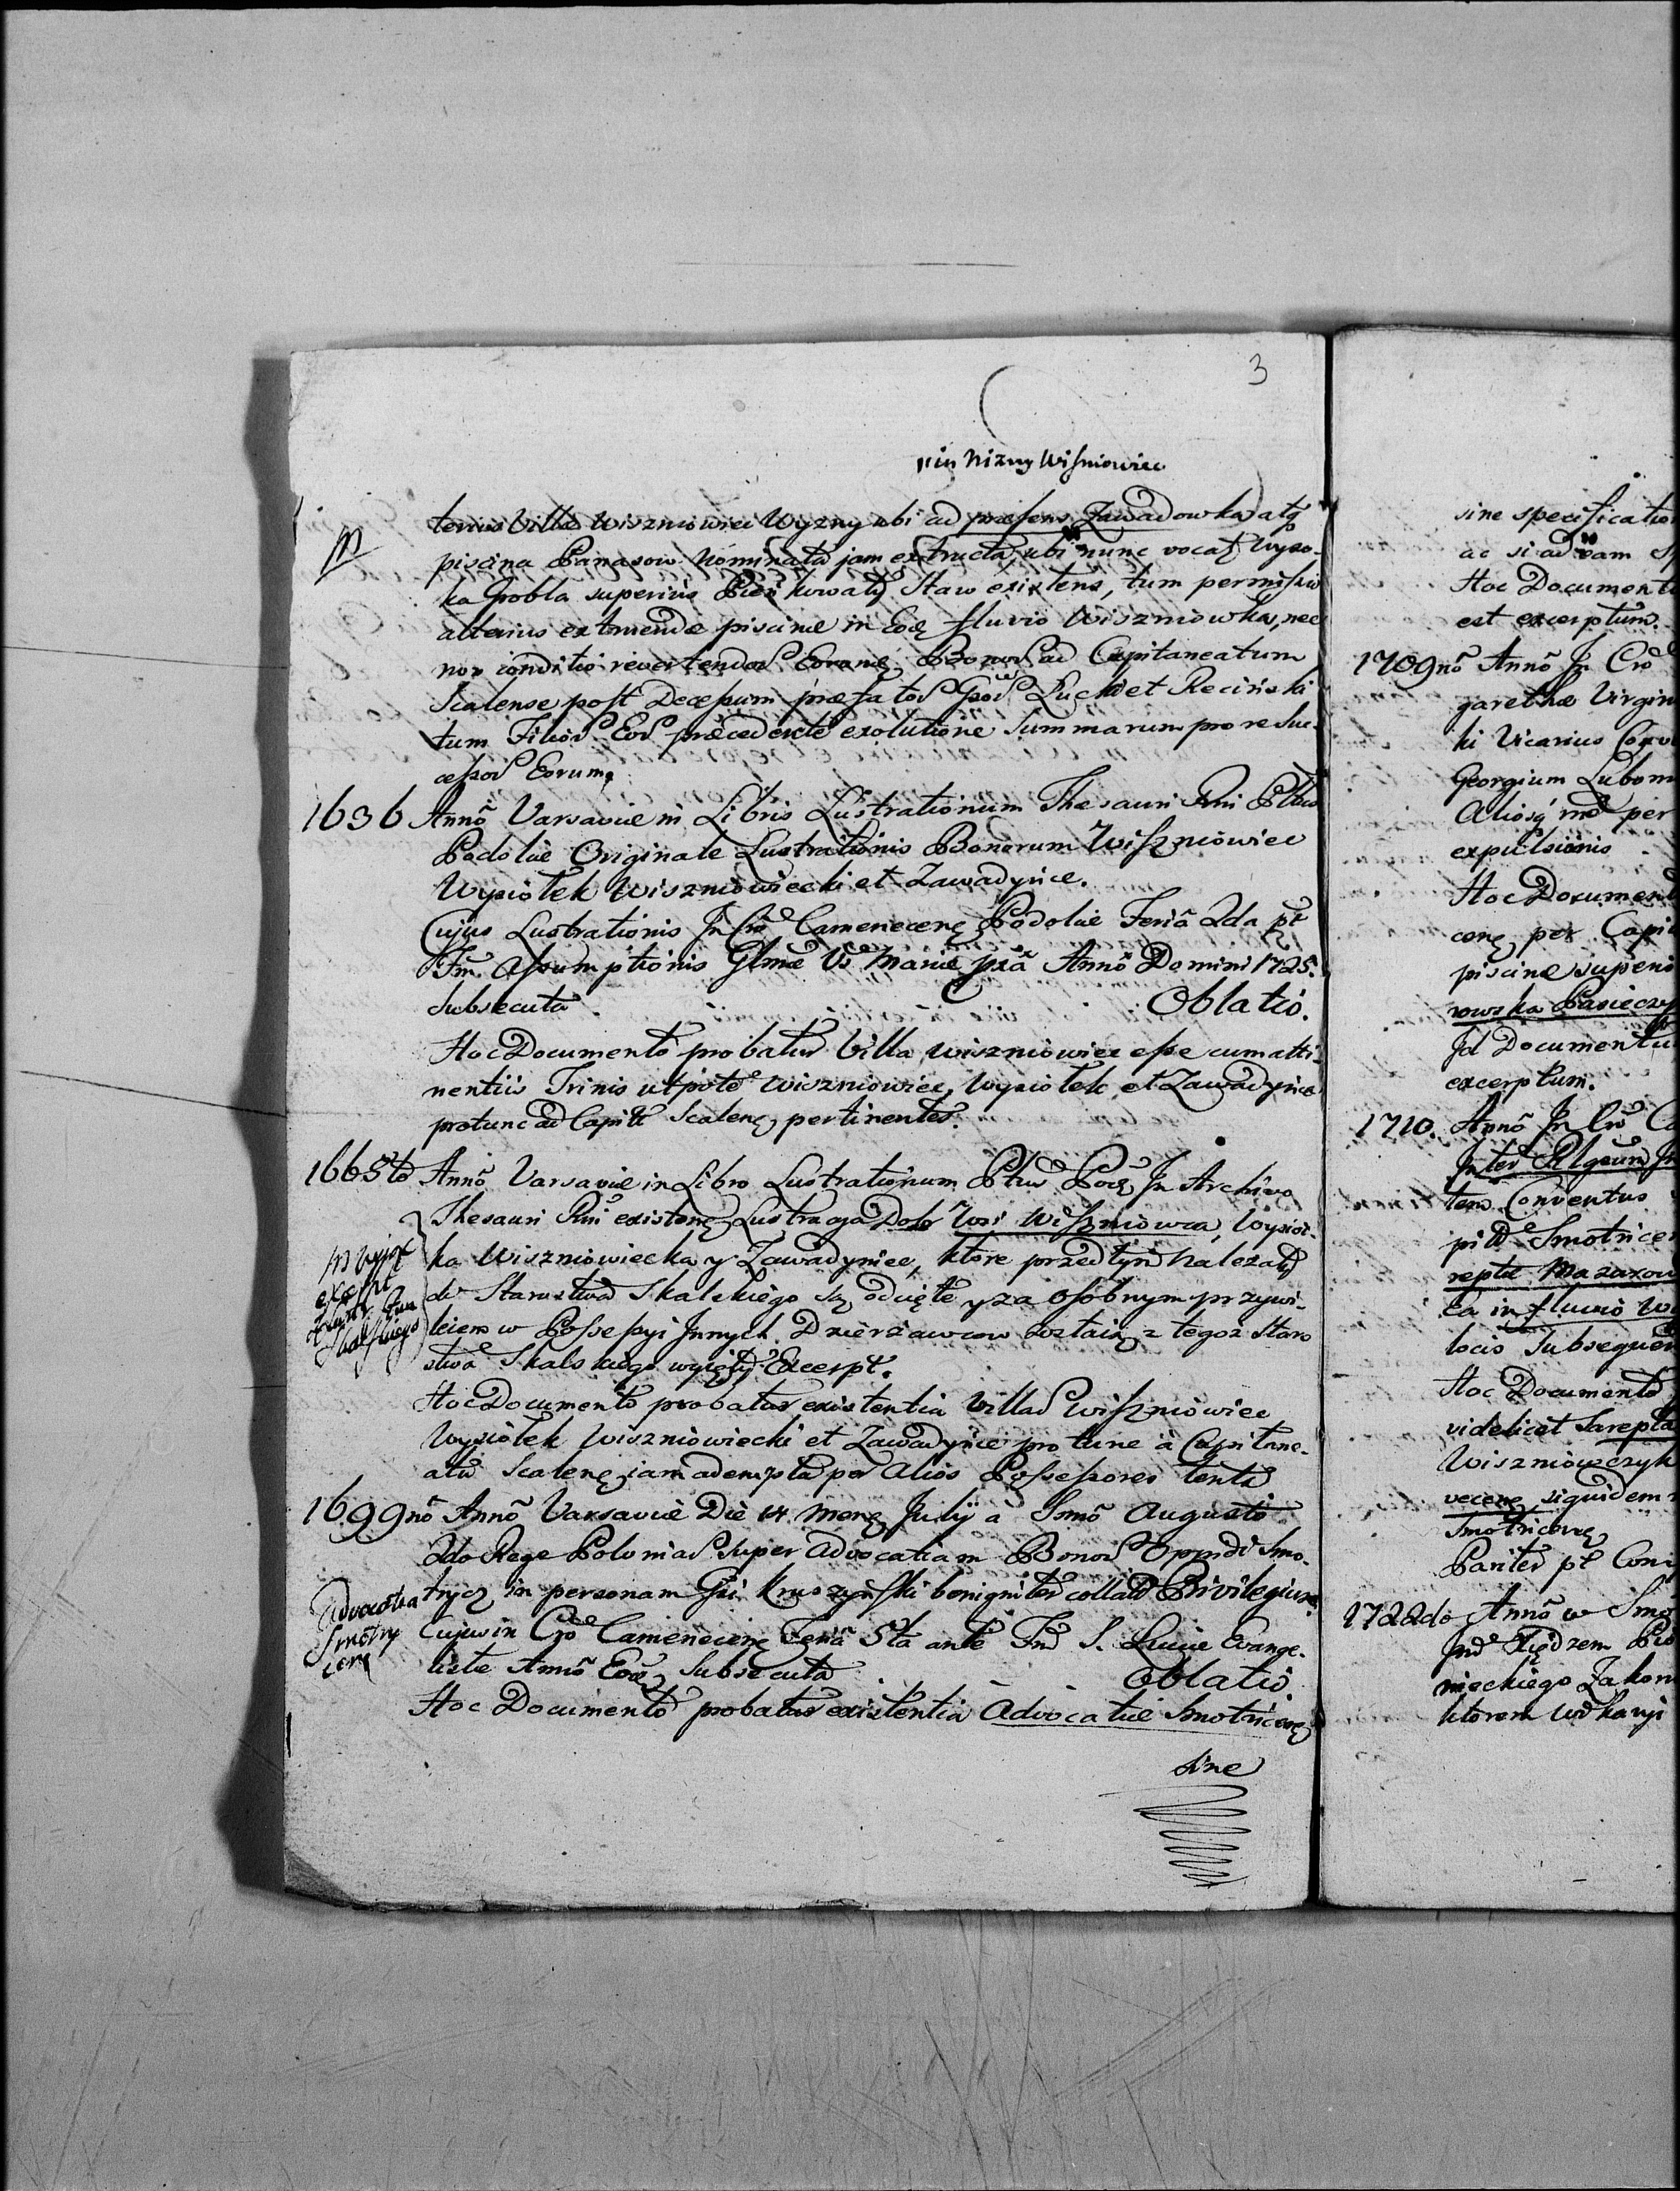 3
Nizny Wiszniowiec
terius Villa Wiszniowiec Wyzny ubi ad præsens Zawadowka atq
piscina Panasow nominata jam extructa, ubi nunc vocat Wyso-
ka Grobla superius Staw existens, tum permissio
alterius extruendæ piscinæ in Eoq fluvio Wiszniowka, nec
non conditio revertendor Eorunq Bonor ad Capitaneatum
Scalense post Decessum præfator Gsor Lucki et Recinski
tum Filior Eor præcedente exolutione Summarum pro re Suc-
cessor Eorumq
1636 Anno Varsaviæ in Libris Lustrationum Thesauri Rni Pltus
Podoliæ Originale Lustrationis Bonorum Wiszniowiec
Wysiolek Wiszniowiecki et Zawadynce.
Cujus Lustrationis In Cro Camenecenq Podoliæ Feria 2da pt
Fm Assumptionis Glmæ Vs Mariæ pxa Anno Domini 1725.
Subsecuta Oblatio.
Hoc Documento probatur Villa Wiszniowiec esse cum atti-
nentiis Trinis utpote Wiszniowiec, Wysiolek et Zawadynce
protunc ad Capit Scalenq pertinentes.
1665to Anno Varsaviæ in Libro Lustrationum Pltus Podq In Archivo
Thesauri Rni existenq Lustracya Dobr Wsi Wiszniowca, Wysioł-
ka Wiszniowiecka y Zawadyniec, ktore przedtym nalezały
do Starostwa Skalskiego są odcięte y za osobnym przywi-
leiem w Possessyi Innych Dzierzawcow zostaią z tegoz Staro
stwa Skalskiego wyięty Excerpt.
Hoc Documento probatur existentia Villar Wiszniowiec
Wysiołek Wiszniowiecki et Zawadynce pro tunc a Capitane-
atu Scalenq jam adempta per Alios Possessores tenta
1699no Anno Varsaviæ Die 14 Mensq Julij a Smo Augusto
2do Rege Poloniar Super Advocatiam Bonor Oppidi Smo-
Advocatia
Smotry
cenq
trycz in personam Gsi Kruszynski benigniter collat Privilegium.
Cujus in Cro Camenecenq Feria 5ta ante Fm S. Luciæ Evange-
listæ Anno Eoq Subsecuta Oblatio
Hoc Documento probatur existentia Advocatiæ Smotricenq
sine
sine specificatio
ac si ad eam
Hoc Documento
est excerptum.
1709no Anno In Cro
garethæ Virgin
ki Vicarius Conv
Georgium Lubom
Aliosq per
expulsionis
Hoc Document
cenq per Capit
piscinæ superi
rowska Pasieczy
Id Documentu
excerptum.
1710. Anno In Cro Ca
Inter Rlgsum In
tem Conventus
pitt Smotrice
reptæ Mazarow
ca in fluvio Wi
locis Subsequen
Hoc Documento
videlicet Sarepta
Wiszniowczyk
vecenq siquidem
Smotricenq
Pariter pt Com
1722do Anno w Smo
Xiędzem Pio
nieckiego Zakon
ktorem